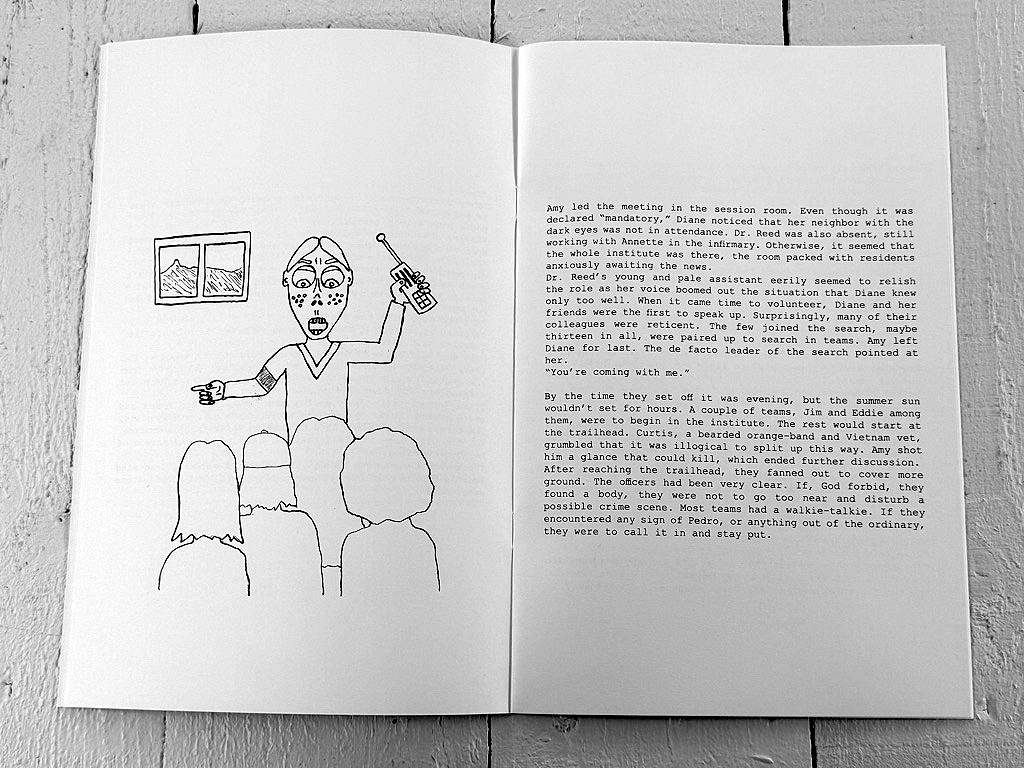 Amy led the meeting in the session room. Even though it was
declared “mandatory,” Diane noticed that her neighbor with the
dark eyes was not in attendance. Dr. Reed was also absent, still
working with Annette in the infirmary. Otherwise, it seemed that
the whole institute was there, the room packed with residents
anxiously awaiting the news.
Dr. Reed’s young and pale assistant eerily seemed to relish
the role as her voice boomed out the situation that Diane knew
only too well. When it came time to volunteer, Diane and her
friends were the first to speak up. Surprisingly, many of their
colleagues were reticent. The few joined the search, maybe
thirteen in all, were paired up to search in teams. Amy left
Diane for last. The de facto leader of the search pointed at
her.
“You’re coming with me.”
By the time they set off it was evening, but the summer sun
wouldn’t set for hours. A couple of teams, Jim and Eddie among
them, were to begin in the institute. The rest would start at
the trailhead. Curtis, a bearded orange-band and Vietnam vet,
grumbled that it was illogical to split up this way. Amy shot
him a glance that could kill, which ended further discussion.
After reaching the trailhead, they fanned out to cover more
ground. The officers had been very clear. If, God forbid, they
found a body, they were not to go too near and disturb a
possible crime scene. Most teams had a walkie-talkie. If they
encountered any sign of Pedro, or anything out of the ordinary,
they were to call it in and stay put.